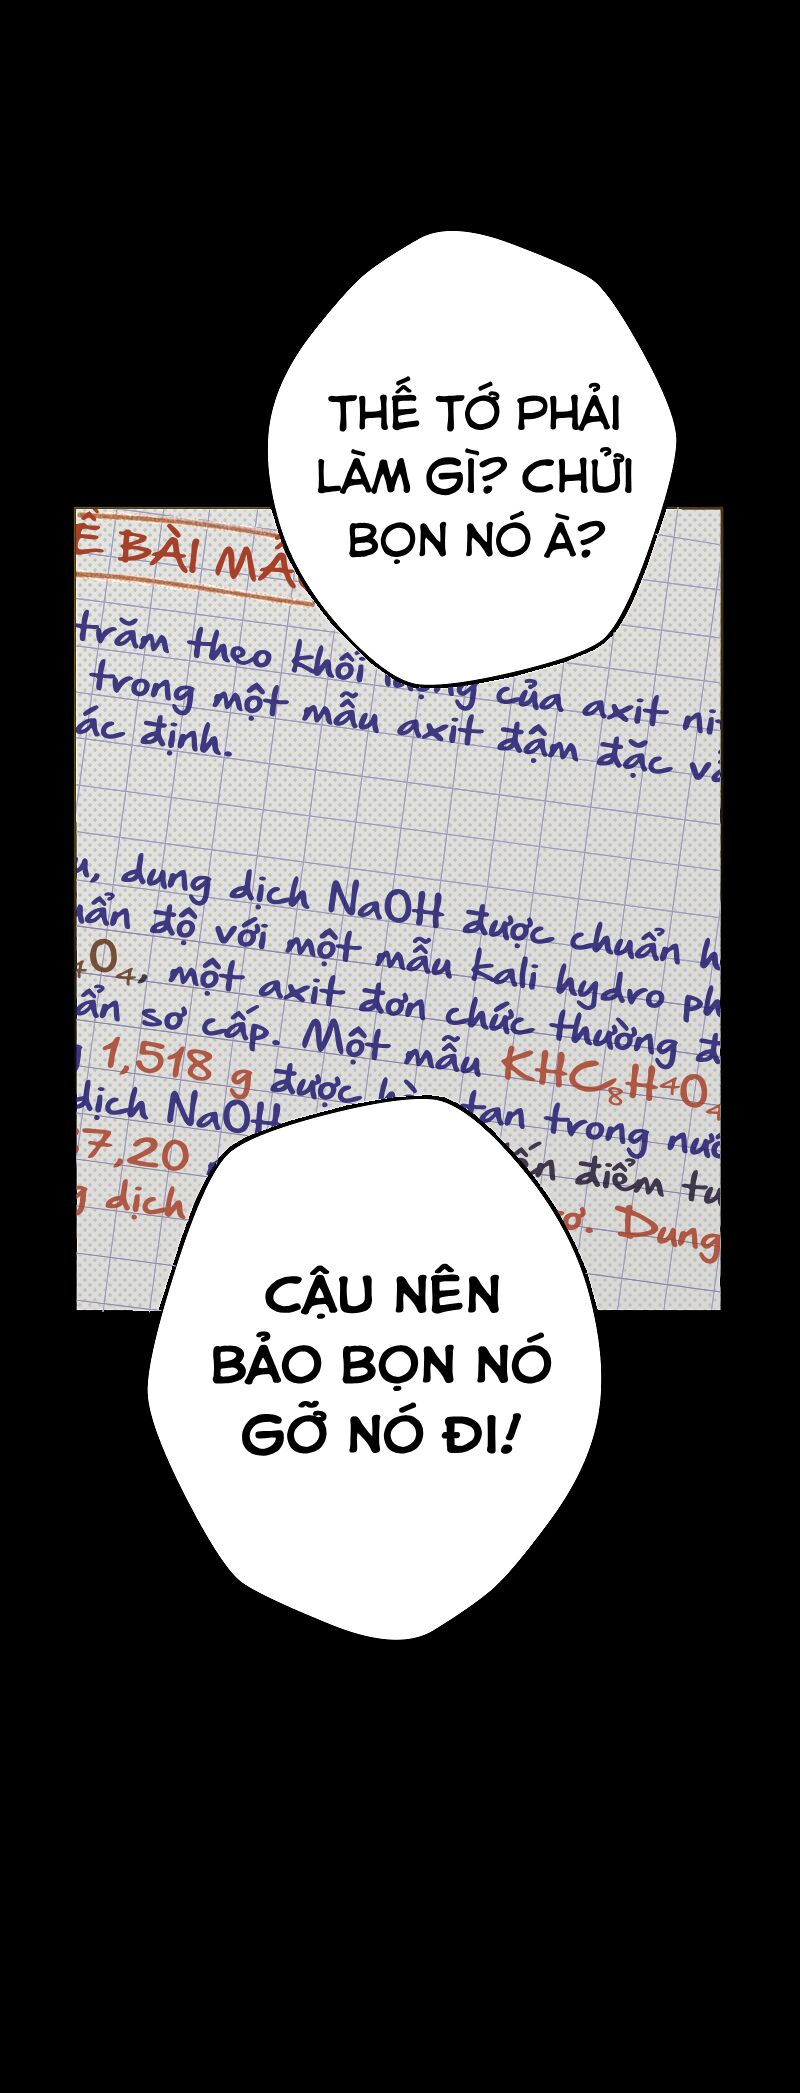 THẾ TỚ PHẢI
LÀM GÌ? CHỬI
BỌN NÓ À?
Ề BÀI MẪ
trăm theo khối lượng của axit ni
trong một mẫu axit đậm đặc v
ác định.
, dung dịch NaOH được chuẩn h
uẩn độ với một mẫu kali hydro ph
₄O₄, một axit đơn chức thường đ
ẩn sơ cấp. Một mẫu KHC₈H₄O₄
1,518 g được hòa tan trong nướ
dịch NaOH
7,20 đến điểm tư
g dịch ơ. Dung
CẬU NÊN
BẢO BỌN NÓ
GỠ NÓ ĐI!